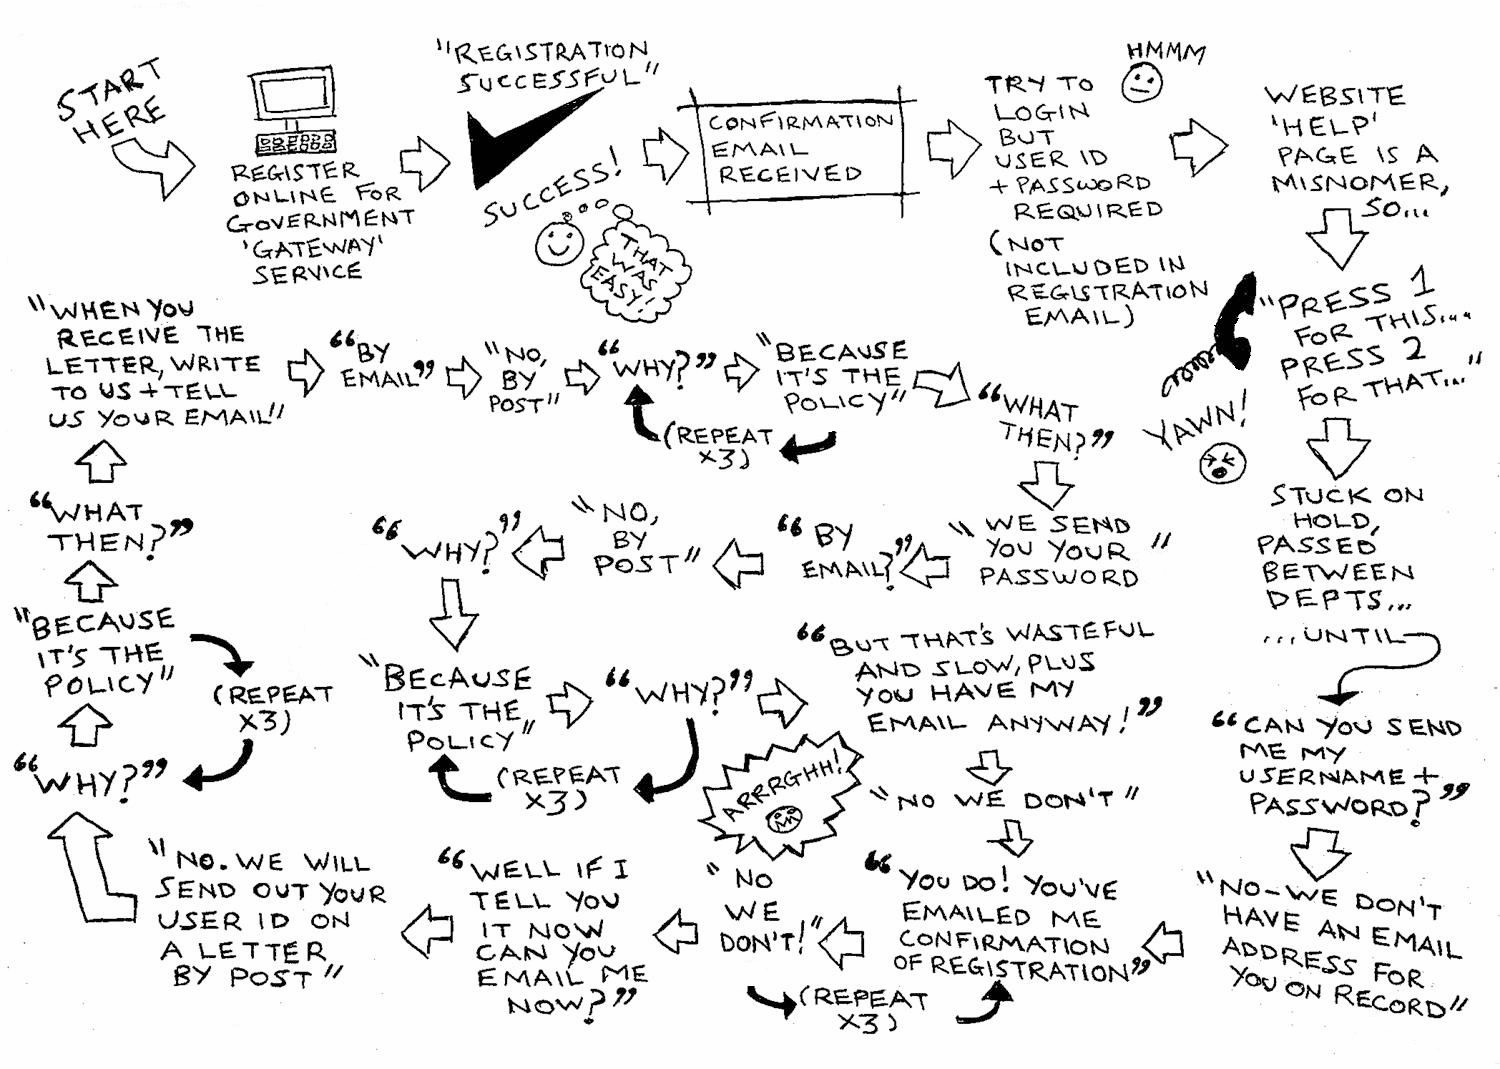 START
HERE
REGISTER
ONLINE FOR
GOVERNMENT
'GATEWAY'
SERVICE
"REGISTRATION
SUCCESSFUL"
SUCCESS!
THAT
WAS
EASY!
CONFIRMATION
EMAIL
RECEIVED
HMMM
TRY TO
LOGIN
BUT
USER ID
+ PASSWORD
REQUIRED
(NOT
INCLUDED IN
REGISTRATION
EMAIL)
WEBSITE
'HELP'
PAGE IS A
MISNOMER,
SO...
"PRESS 1
FOR THIS...
PRESS 2
FOR THAT..."
YAWN!
STUCK ON
HOLD,
PASSED
BETWEEN
DEPTS...
...UNTIL
"CAN YOU SEND
ME MY
USERNAME +
PASSWORD?"
"NO-WE DON'T
HAVE AN EMAIL
ADDRESS FOR
YOU ON RECORD"
"YOU DO! YOU'VE
EMAILED ME
CONFIRMATION
OF REGISTRATION"
"NO
WE
DON'T!"
(REPEAT
X3)
"WELL IF I
TELL YOU
IT NOW
CAN YOU
EMAIL ME
NOW?"
"NO. WE WILL
SEND OUT YOUR
USER ID ON
A LETTER
BY POST"
"WHY?"
"BECAUSE
IT'S THE
POLICY"
(REPEAT
X3)
"WHAT
THEN?"
"WHEN YOU
RECEIVE THE
LETTER, WRITE
TO US + TELL
US YOUR EMAIL"
"BY
EMAIL"
"NO,
BY
POST"
"WHY?"
"BECAUSE
IT'S THE
POLICY"
(REPEAT
X3)
"WHAT
THEN?"
"WE SEND
YOU YOUR"
PASSWORD
"BY
EMAIL?"
"NO,
BY
POST"
"WHY?"
"BECAUSE
IT'S THE
POLICY"
"WHY?"
(REPEAT
X3)
"BUT THAT'S WASTEFUL
AND SLOW, PLUS
YOU HAVE MY
EMAIL ANYWAY!"
ARRRGHH!
"NO WE DON'T"